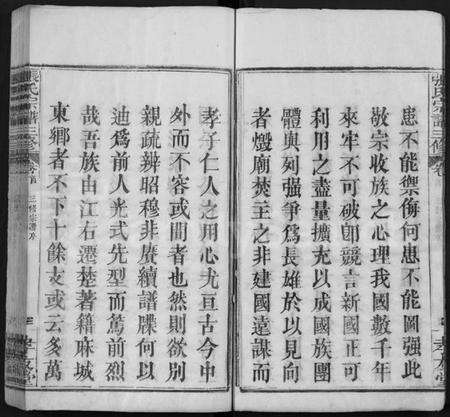 張氏宗譜三修 卷
孝友堂
患不能禦侮何患不能圖强此
敬宗收族之心理我國數千年
來牢不可破卽競言新國正可
利用之盡量擴充以成國族團
體與列强爭爲長雄於以見向
者燬廟焚主之非建國遠謀而
孝子仁人之用心尤亘古今中
外而不容或間者也然則欲別
親疏辨昭穆非賡續譜牒何以
迪爲前人光式先型而篤前烈
哉吾族由江右遷楚著籍麻城
東鄉者不下十餘支或云多萬
張氏宗譜三修
三修宗譜序